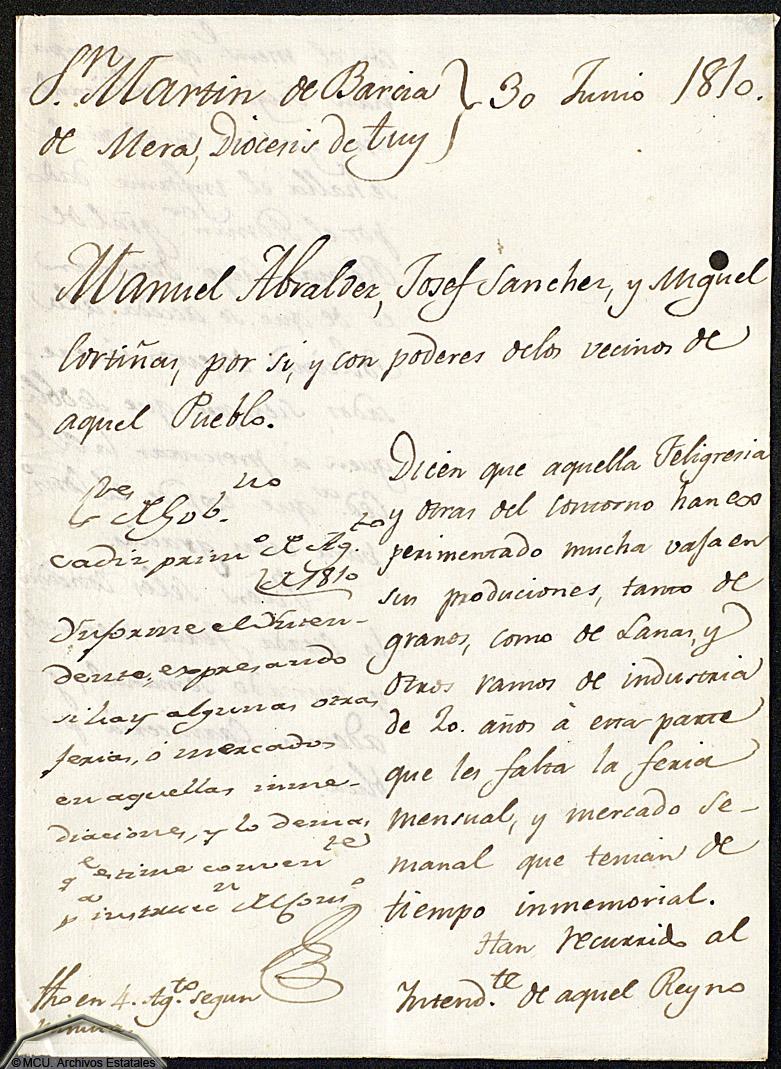 Sn. Martin de Barcia
de Mera, Diocesis de tuy } 30 Junio 1810.
Manuel Abraldez, Josef Sanchez, y Miguel
Cortiñas, por si, y con poderes delos vecinos de
aquel Pueblo.
Dicen que aquella Feligresia
y otras del contorno han ex
perimentado mucha vaja en
sus produciones, tanto de
granos, como de Lanas, y
otros ramos de industria
de 20. años à esta parte
que les falta la feria
mensual, y mercado se-
manal que tenian de
tiempo inmemorial.
Han recurrido al
Intend.te de aquel Reyno
Gob.no
Cadiz primo. de Ag.to
de 1810
Informe el Inten-
dente, expresando
si hay algunas otras
ferias, ó mercados
en aquellas inme-
diaciones, y lo demas
qe estime conven.te
pa instrucon. del
fho en 4. Ag.to segun
minuta
© MCU. Archivos Estatales